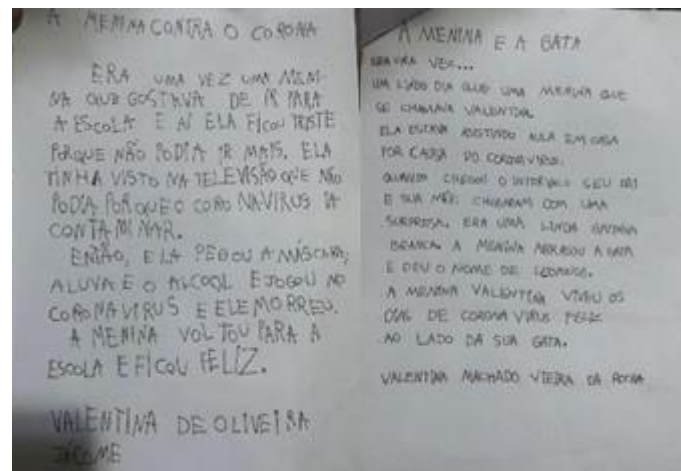 A MENINA CONTRA O CORONA
ERA UMA VEZ UMA MENI-
NA QUE GOSTAVA DE IR PARA
A ESCOLA E AÍ ELA FICOU TRISTE
PORQUE NÃO PODIA IR MAIS. ELA
TINHA VISTO NA TELEVISÃO QUE NÃO
PODIA PORQUE O CORONAVIRUS IA
CONTAMINAR.
ENTÃO, ELA PEGOU A MÁSCARA,
A LUVA E O ALCOOL E JOGOU NO
CORONAVIRUS E ELE MORREU.
A MENINA VOLTOU PARA A
ESCOLA E FICOU FELIZ.
VALENTINA DE OLIVEIRA
JÁCOME
A MENINA E A GATA
ERA UMA VEZ...
UM LINDO DIA QUE UMA MENINA QUE
SE CHAMAVA VALENTINA.
ELA ESTAVA ASSISTINDO AULA EM CASA
POR CAUSA DO CORONAVIRUS.
QUANDO CHEGOU O INTERVALO SEU PAI
E SUA MÃE CHEGARAM COM UMA
SURPRESA. ERA UMA LINDA GATINHA
BRANCA. A MENINA ABRAÇOU A GATA
E DEU O NOME DE
A MENINA VALENTINA VIVEU OS
DIAS DE CORONA VIRUS FELIZ
AO LADO DA SUA GATA.
VALENTINA MACHADO VIEIRA DA ROCHA